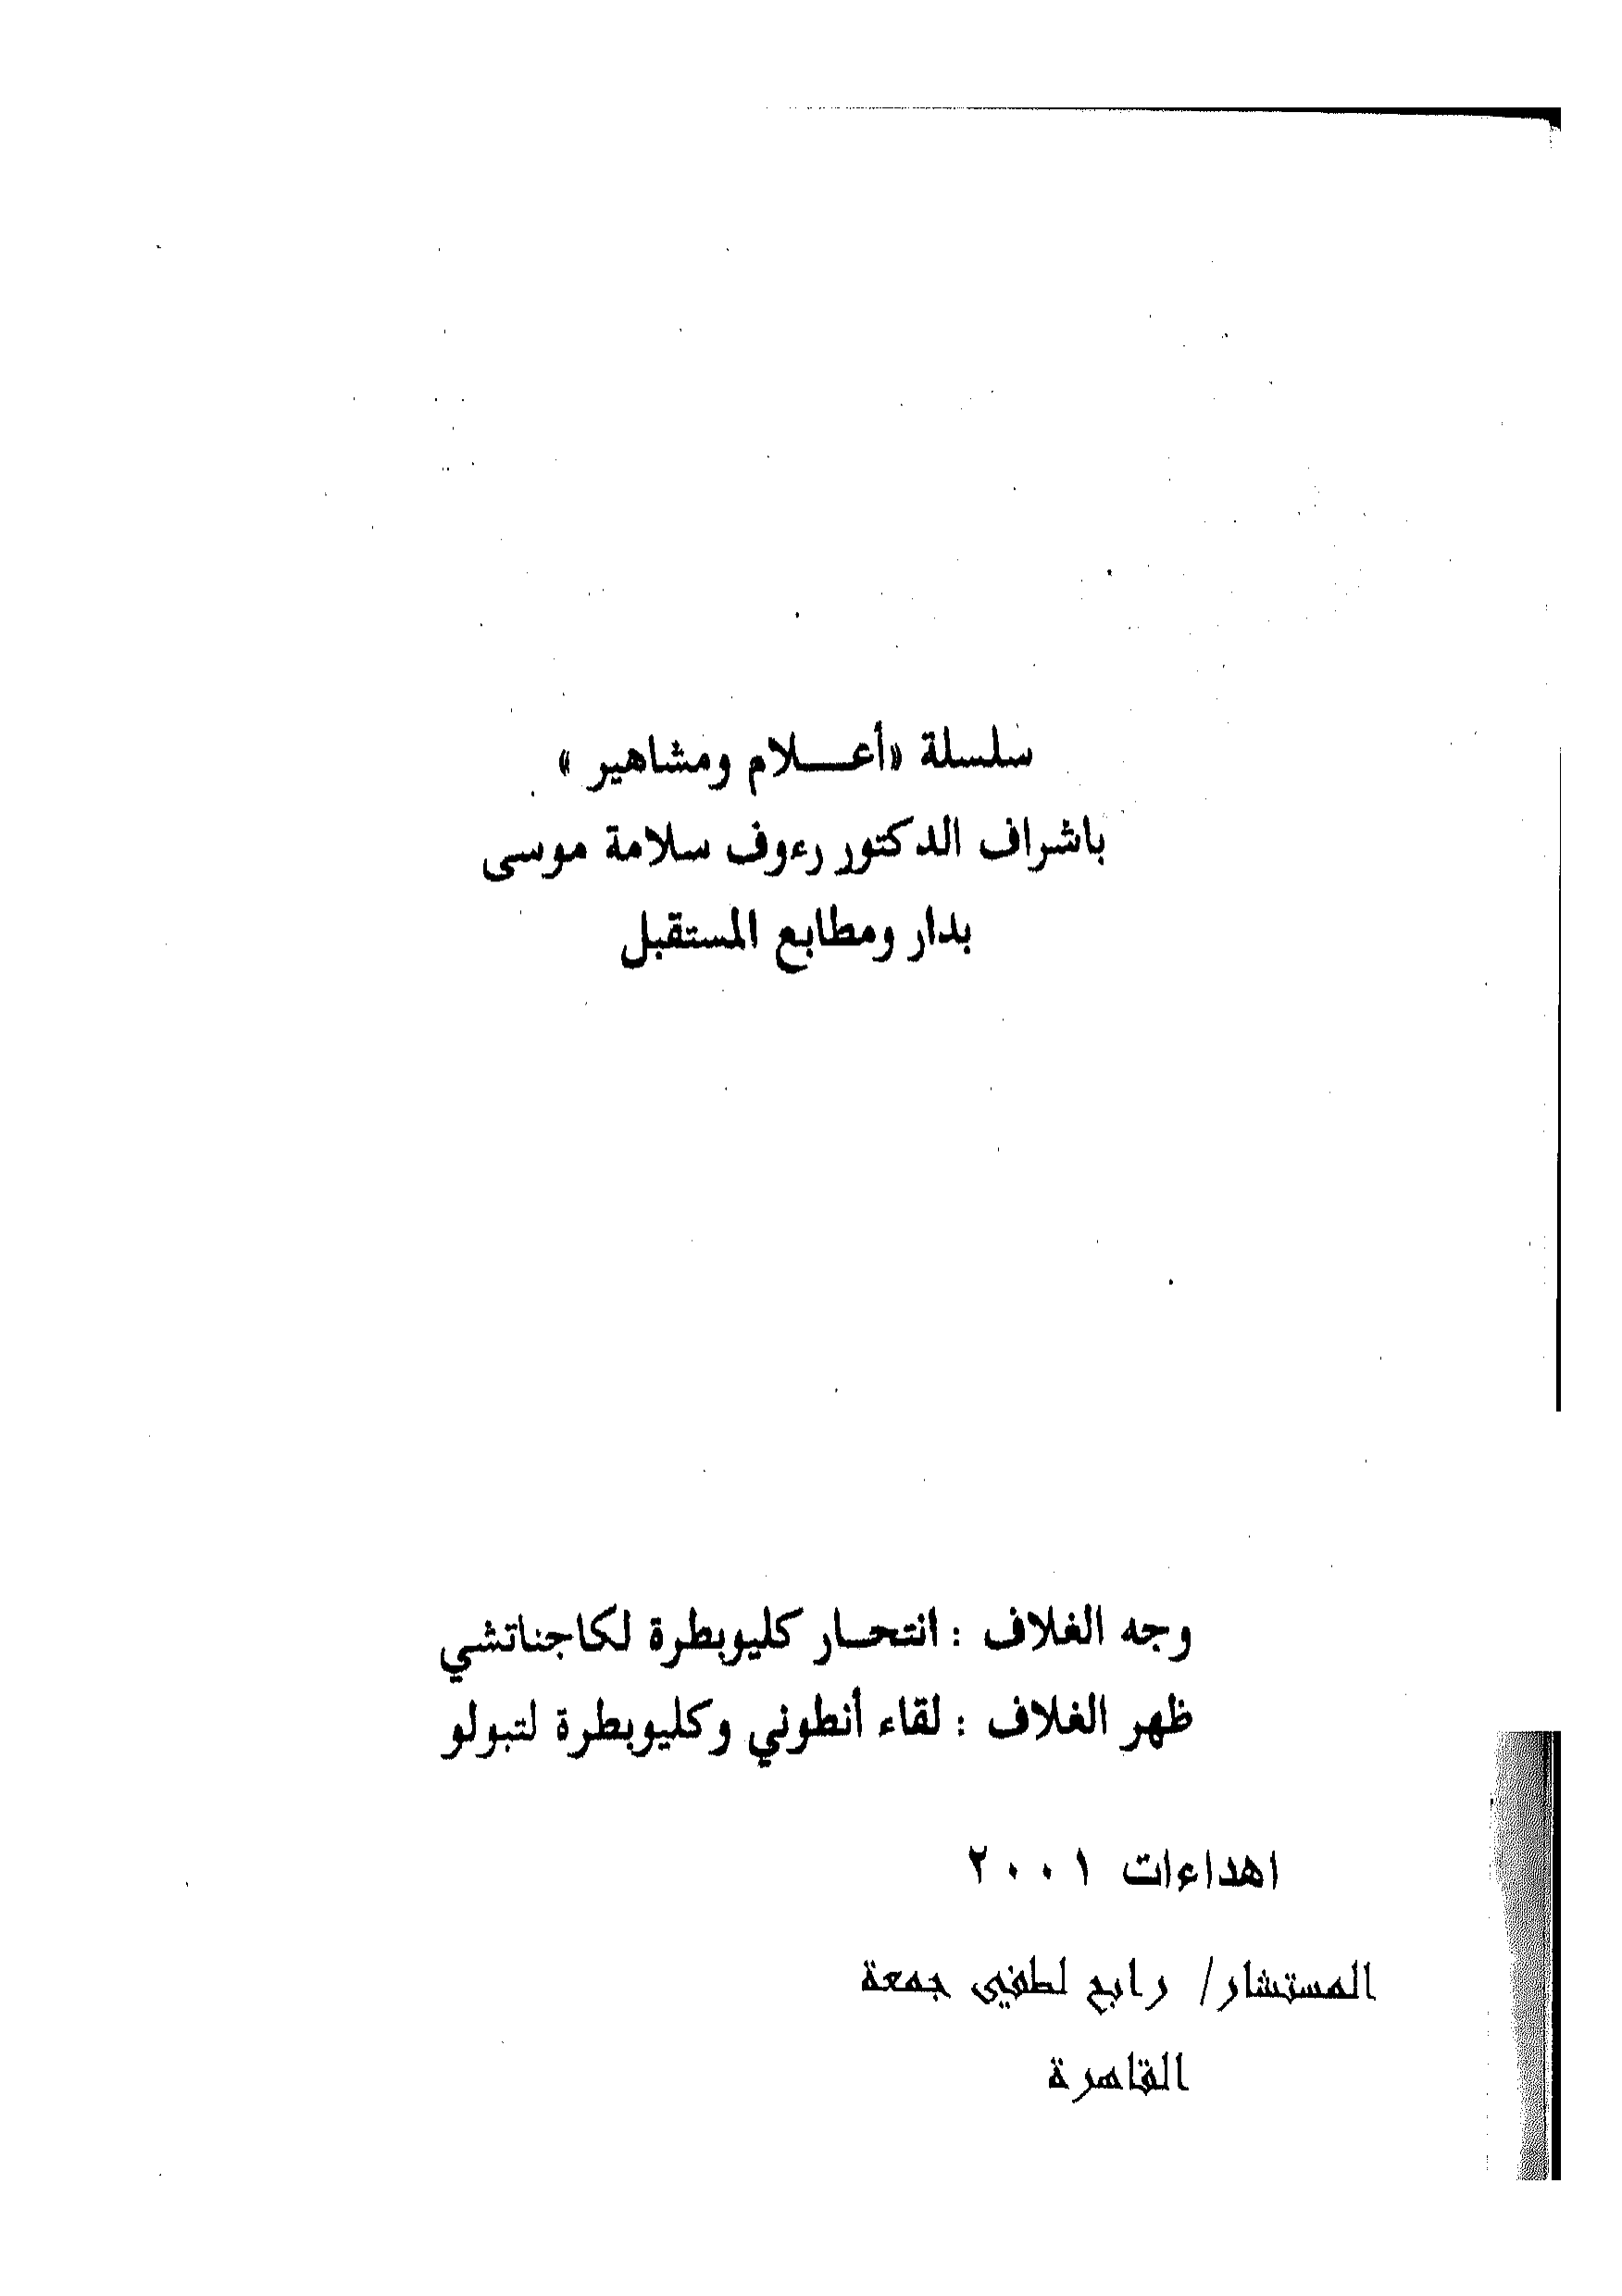 سلسلة «أعـــلام ومشاهير »
باشراف الدكتور رءوف سلامة موسى
بدار ومطابع المستقبل
وجه الغلاف : انتحـار كليوبطرة لكاجناتشي
ظهر الغلاف : لقاء أنطوني وكليوبطرة لتبولو
اهداءات ٢٠٠١
المستشار/ رابح لطفي جمعة
القاهرة